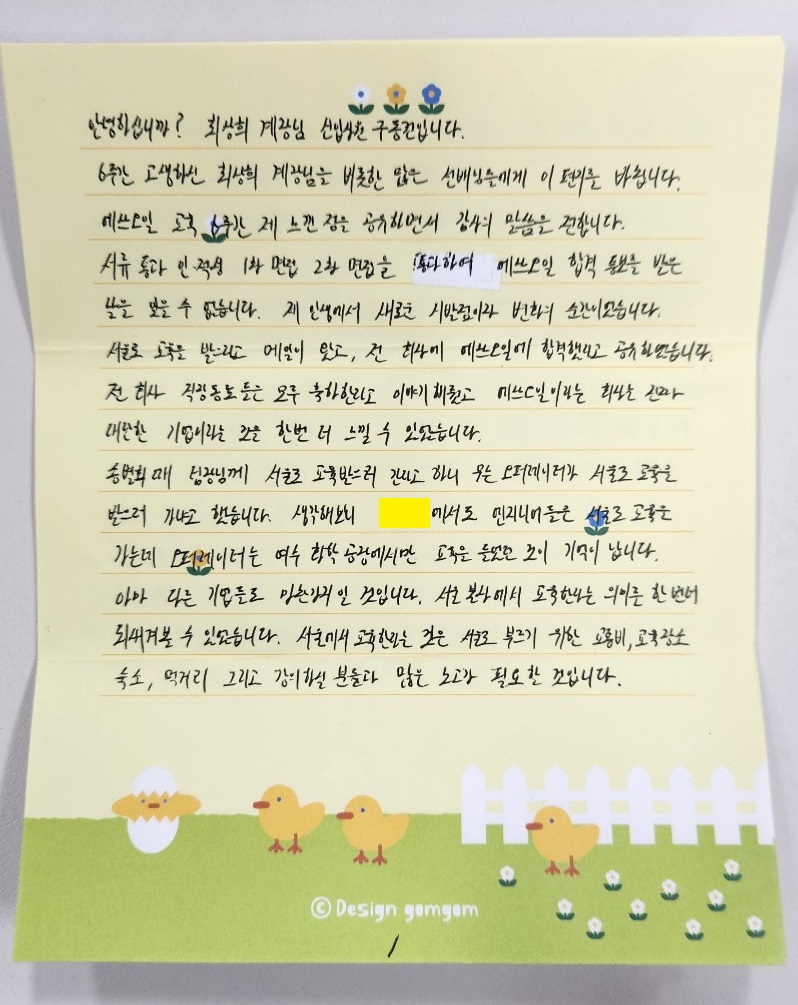 안녕하십니까? 최상희 계장님 신입사원 구동건입니다.
6주간 고생하신 최상희 계장님을 비롯한 많은 선배님들에게 이 편지를 바칩니다.
에쓰오일 교육 6주간 제 느낀 점을 공유하면서 감사의 말씀을 전합니다.
서류 통과 인·적성 1차 면접 2차 면접을 통과하여 에쓰오일 합격 통보를 받은
날을 잊을 수 없습니다. 제 인생에서 새로운 시발점이라 변화의 순간이었습니다.
서울로 교육을 받으라고 메일이 왔고, 전 회사에 에쓰오일에 합격했다고 공유하였습니다.
전 회사 직장동료들은 모두 축하한다고 이야기해줬고 에쓰오일이라는 회사는 진짜
대단한 기업이라는 것을 한번 더 느낄 수 있었습니다.
송별회 때 팀장님께 서울로 교육받으러 간다고 하니 무슨 오퍼레이터가 서울로 교육을
받으러 가냐고 했습니다. 생각해보니 에서도 엔지니어들은 서울로 교육을
가는데 오퍼레이터는 여수 화학 공장에서만 교육을 들었던 것이 기억이 납니다.
아마 다른 기업들도 마찬가지일 것입니다. 서울 본사에서 교육한다는 의미를 한번더
되새겨볼 수 있었습니다. 서울에서 교육한다는 것은 서울로 부르기 위한 교통비, 교육장소
숙소, 먹거리 그리고 강의하실 분들과 많은 노고가 필요한 것입니다.
© Design gomgom
1